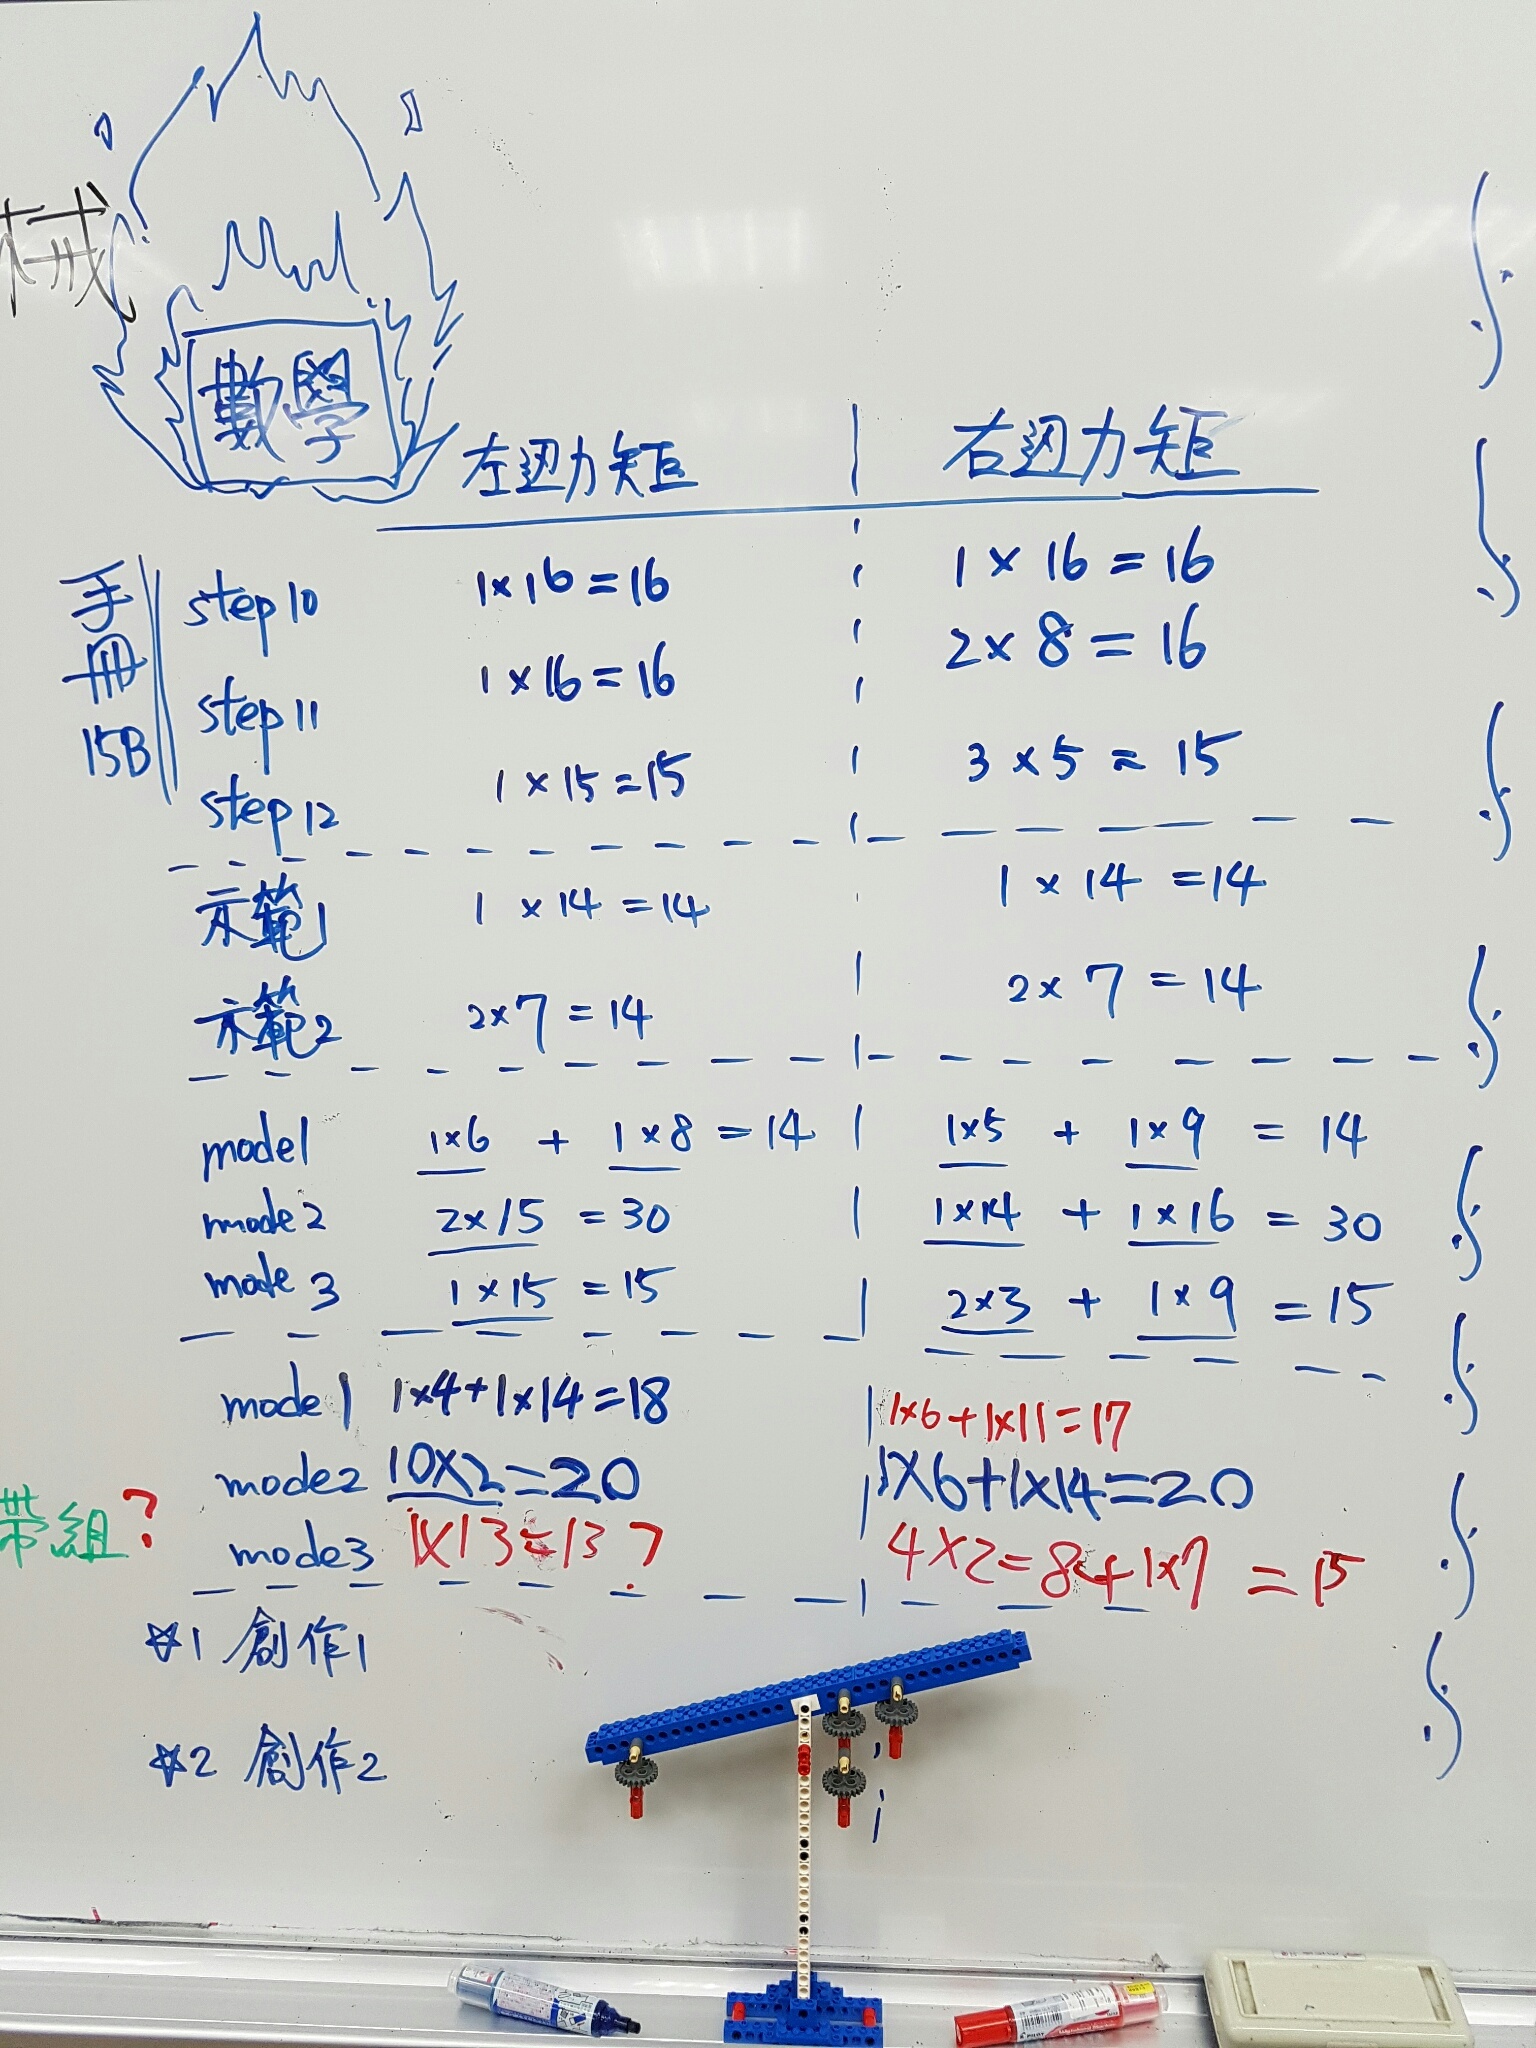 械
數學
左边力矩 右边力矩
手冊15B
step10 1x16=16 1x16=16
step11 1x16=16 2x8=16
step12 1x15=15 3x5=15
示範1 1x14=14 1x14=14
示範2 2x7=14 2x7=14
mode1 1x6+1x8=14 1x5+1x9=14
mode2 2x15=30 1x14+1x16=30
mode3 1x15=15 2x3+1x9=15
mode1 1x4+1x14=18 1x6+1x11=17
mode2 10x2=20 1x6+1x14=20
帶組? mode3 1x13=13? 4x2=8+1x7=15
☆1 創作1
☆2 創作2
PILOT